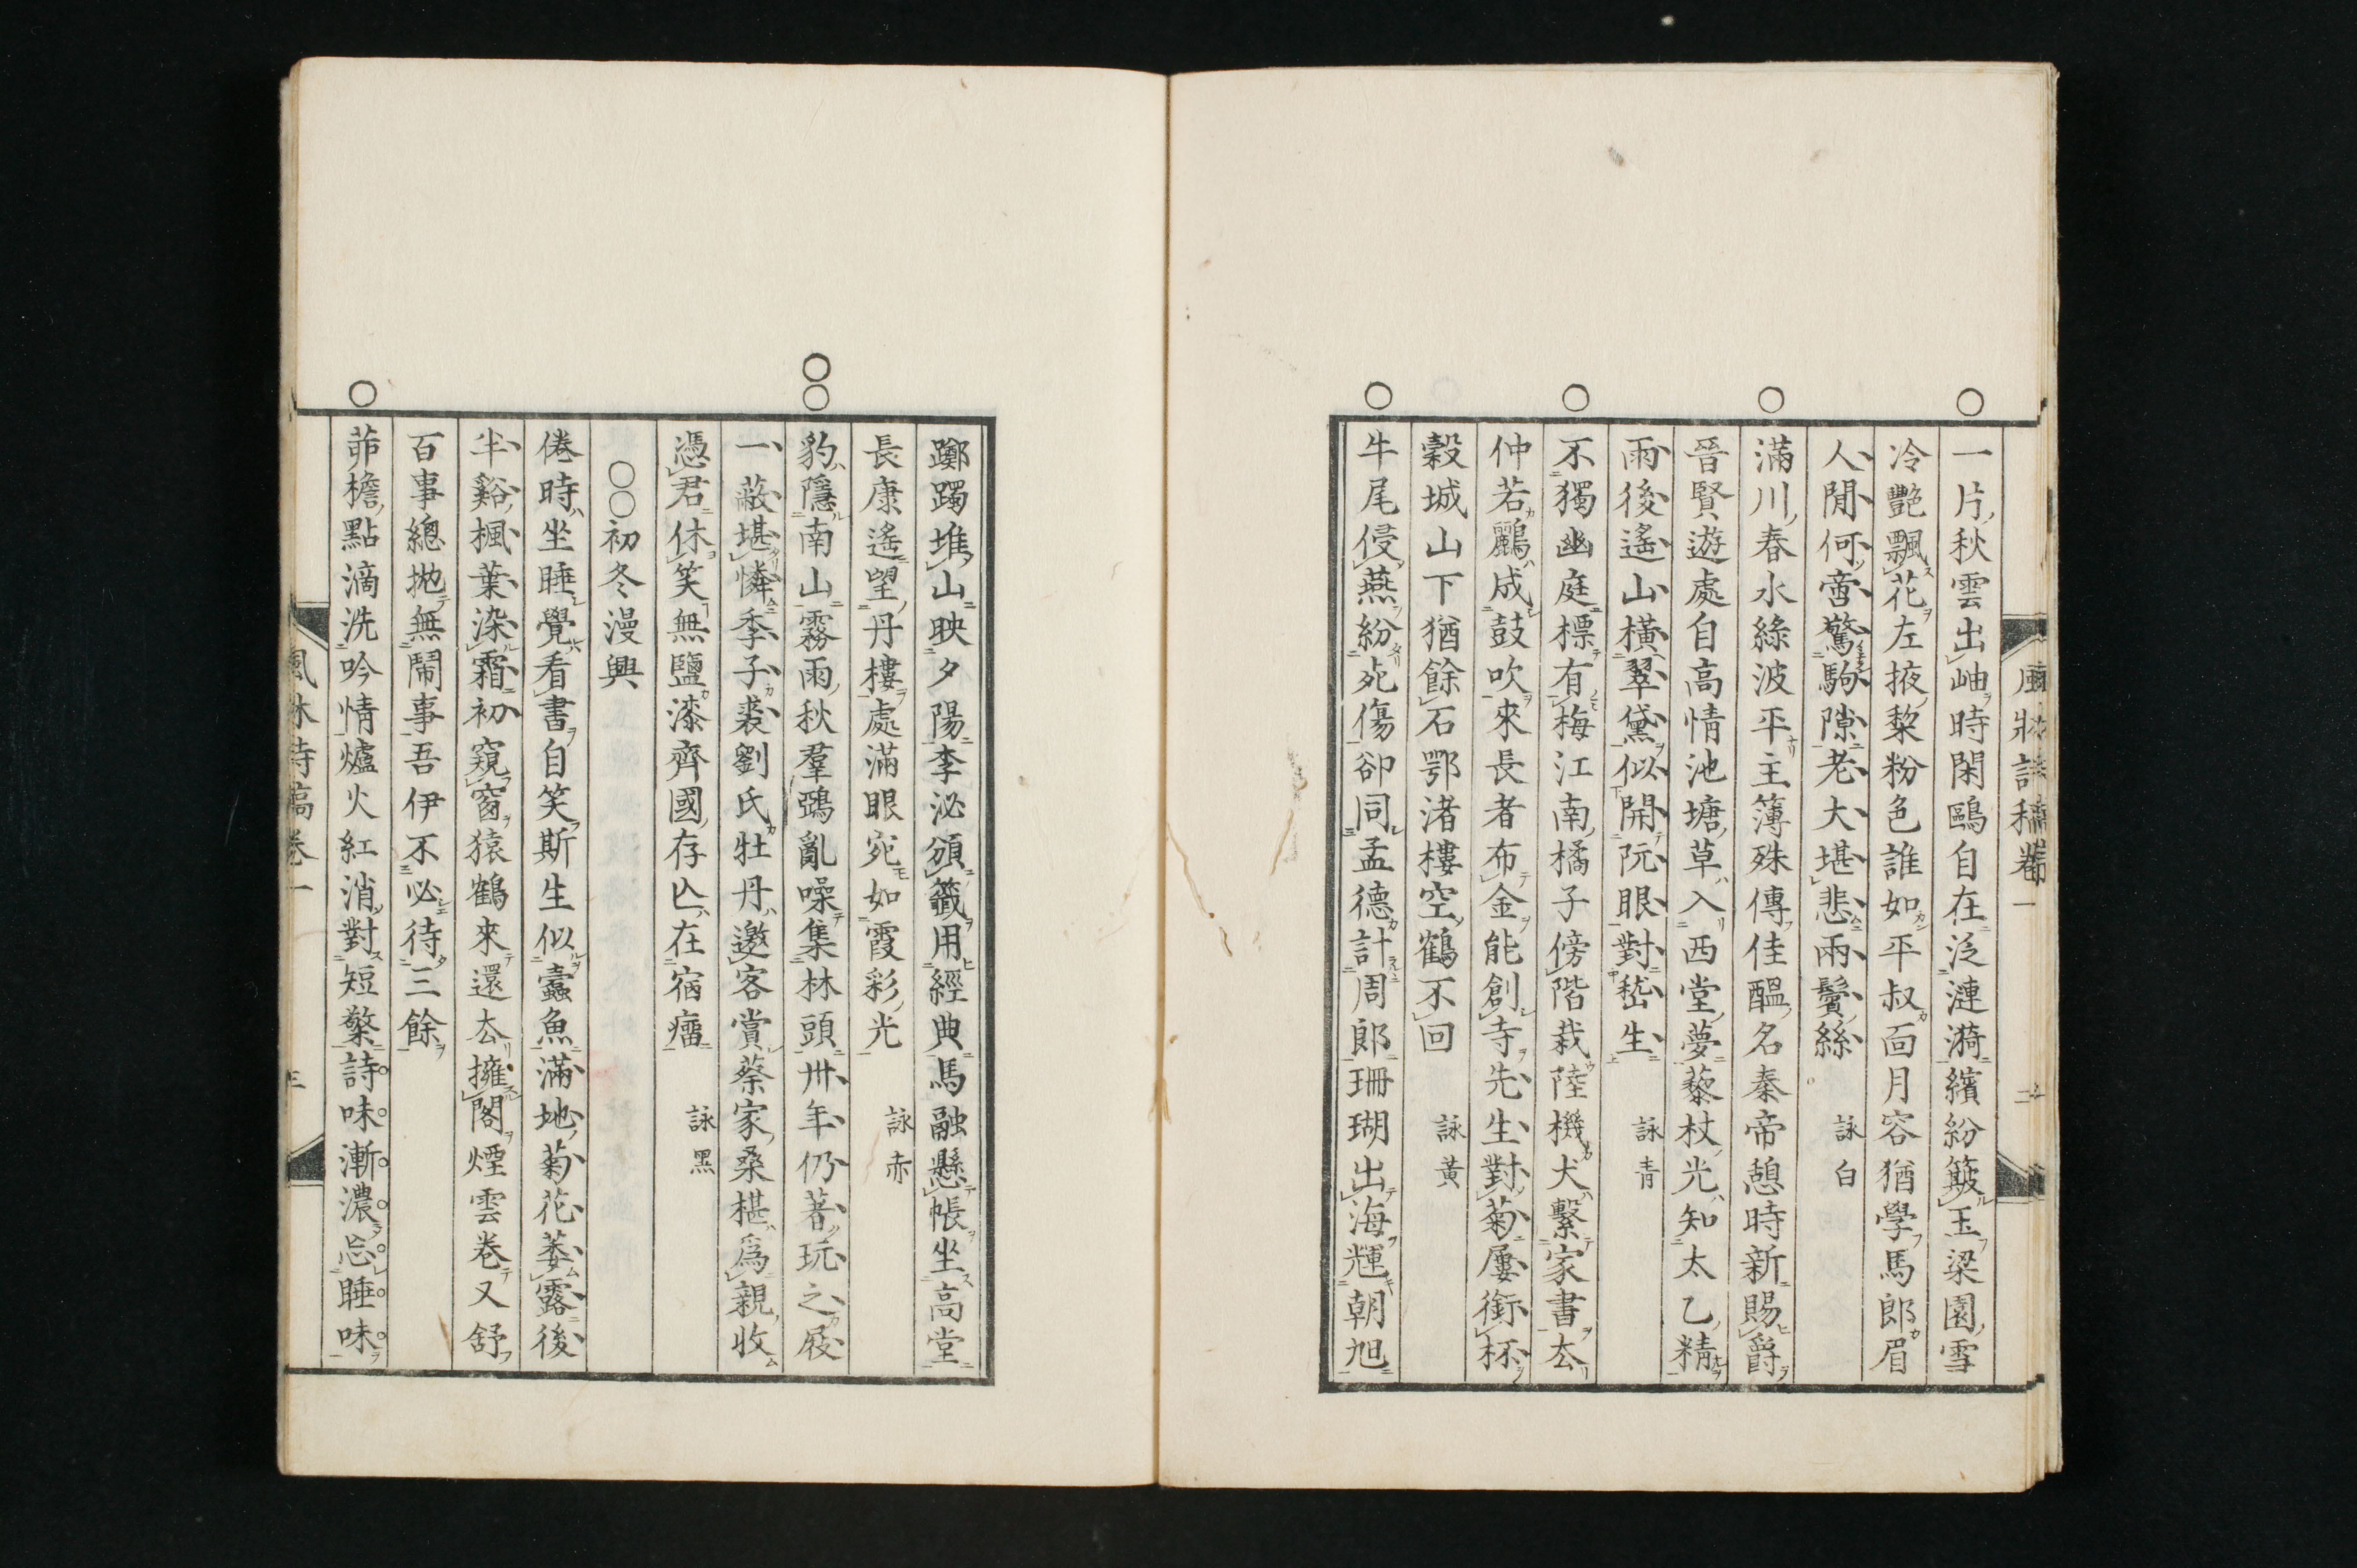 一片秋雲出岫時閑鷗自在泛漣漪繽紛簸玉梁園雪
冷艷飄花左掖棃粉色誰如平叔面月容猶學馬郎眉
人閒何啻驚駒隙老大堪悲兩鬢絲 詠白
滿川春水綠波平主簿殊傳佳醞名秦帝憩時新賜爵
晉賢遊處自高情池塘草入西堂夢藜杖光知太乙精
雨後遙山橫翠黛似開阮眼對嵇生 詠青
不獨幽庭標有梅江南橘子傍階栽陸機犬繫家書去
仲若鸝成鼓吹來長者布金能創寺先生對菊屢銜杯
穀城山下猶餘石鄂渚樓空鶴不回 詠黃
牛尾侵燕紛死傷卻同孟德計周郎珊瑚出海輝朝旭
躑躅堆山映夕陽李泌頒籤用經典馬融懸帳坐高堂
長康遙望丹樓處滿眼宛如霞彩光 詠赤
豹隱南山霧雨秋羣鵶亂噪集林頭卅年仍著玩之屐
一敝堪憐季子裘劉氏牡丹邀客賞蔡家桑椹爲親收
憑君休笑無鹽漆齊國存亾在宿瘤 詠黑
○○初冬漫興
倦時坐睡覺看書自笑斯生似蠹魚滿地菊花萎露後
半谿楓葉染霜初窺窗猿鶴來還去擁閣煙雲卷又舒
百事總拋無鬧事吾伊不必待三餘
茆檐點滴洗吟情爐火紅消對短檠詩味漸濃忘睡味
風林詩稿卷一 三